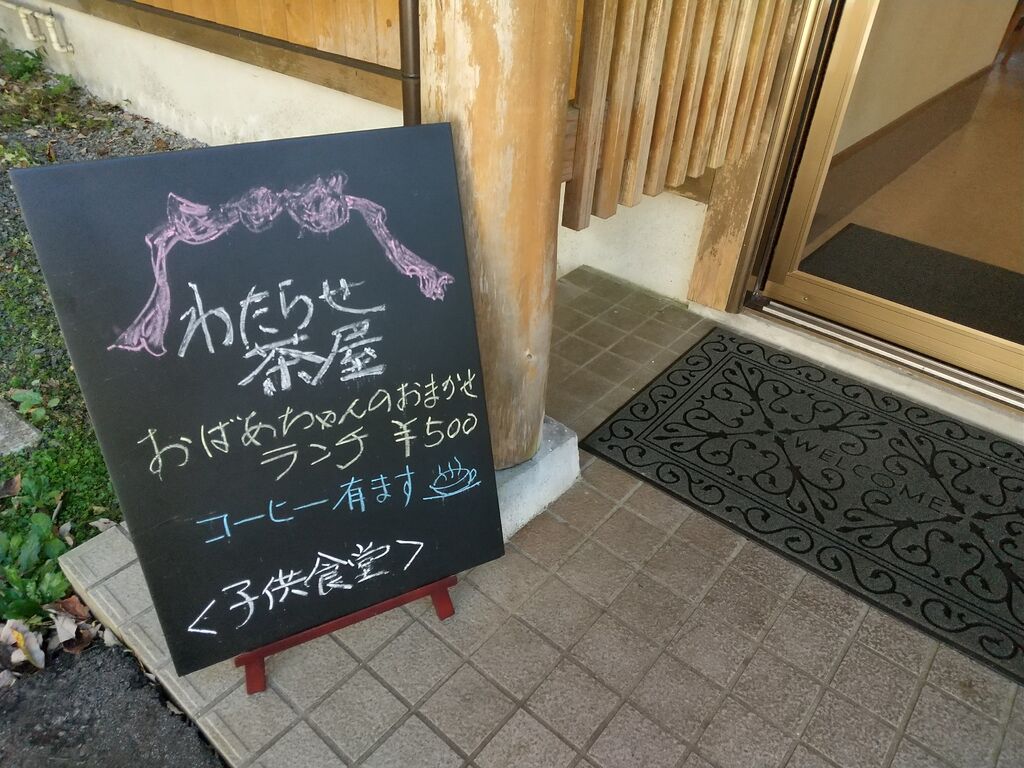 わたらせ
茶屋
おばあちゃんのおまかせ
ランチ ¥500
コーヒー有ます
<子供食堂>
WELCOME